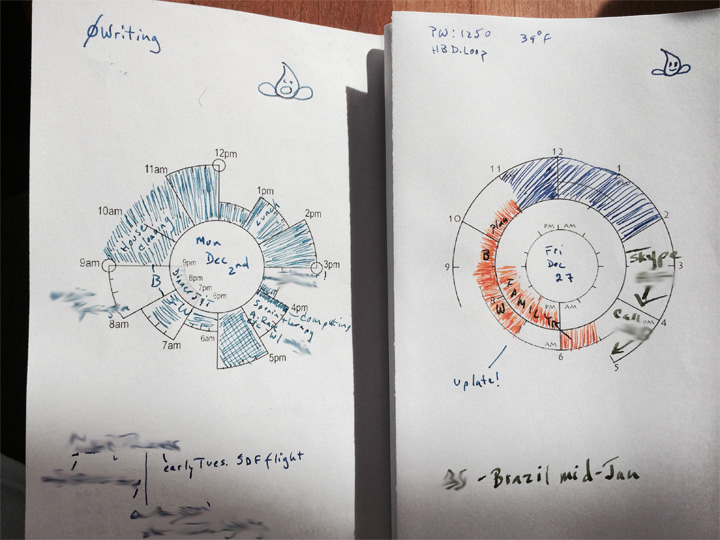 ØWriting
12pm
11am
1pm
10am
Lunch
2pm
House
cleaning
Mon
Dec
2nd
9am
9pm
8pm
7pm
6pm
3pm
B
Dinner
W
4pm
Computing
8am
7am
6am
5pm
early Tues. SDF flight
PW: 1250
39°F
HBD.Loop
12
11
1
10
2
Play
PM
AM
Fri
Dec
27
9
B
3
Skype
W
Call
4
AM
6
5
Update!
- Brazil mid-Jan